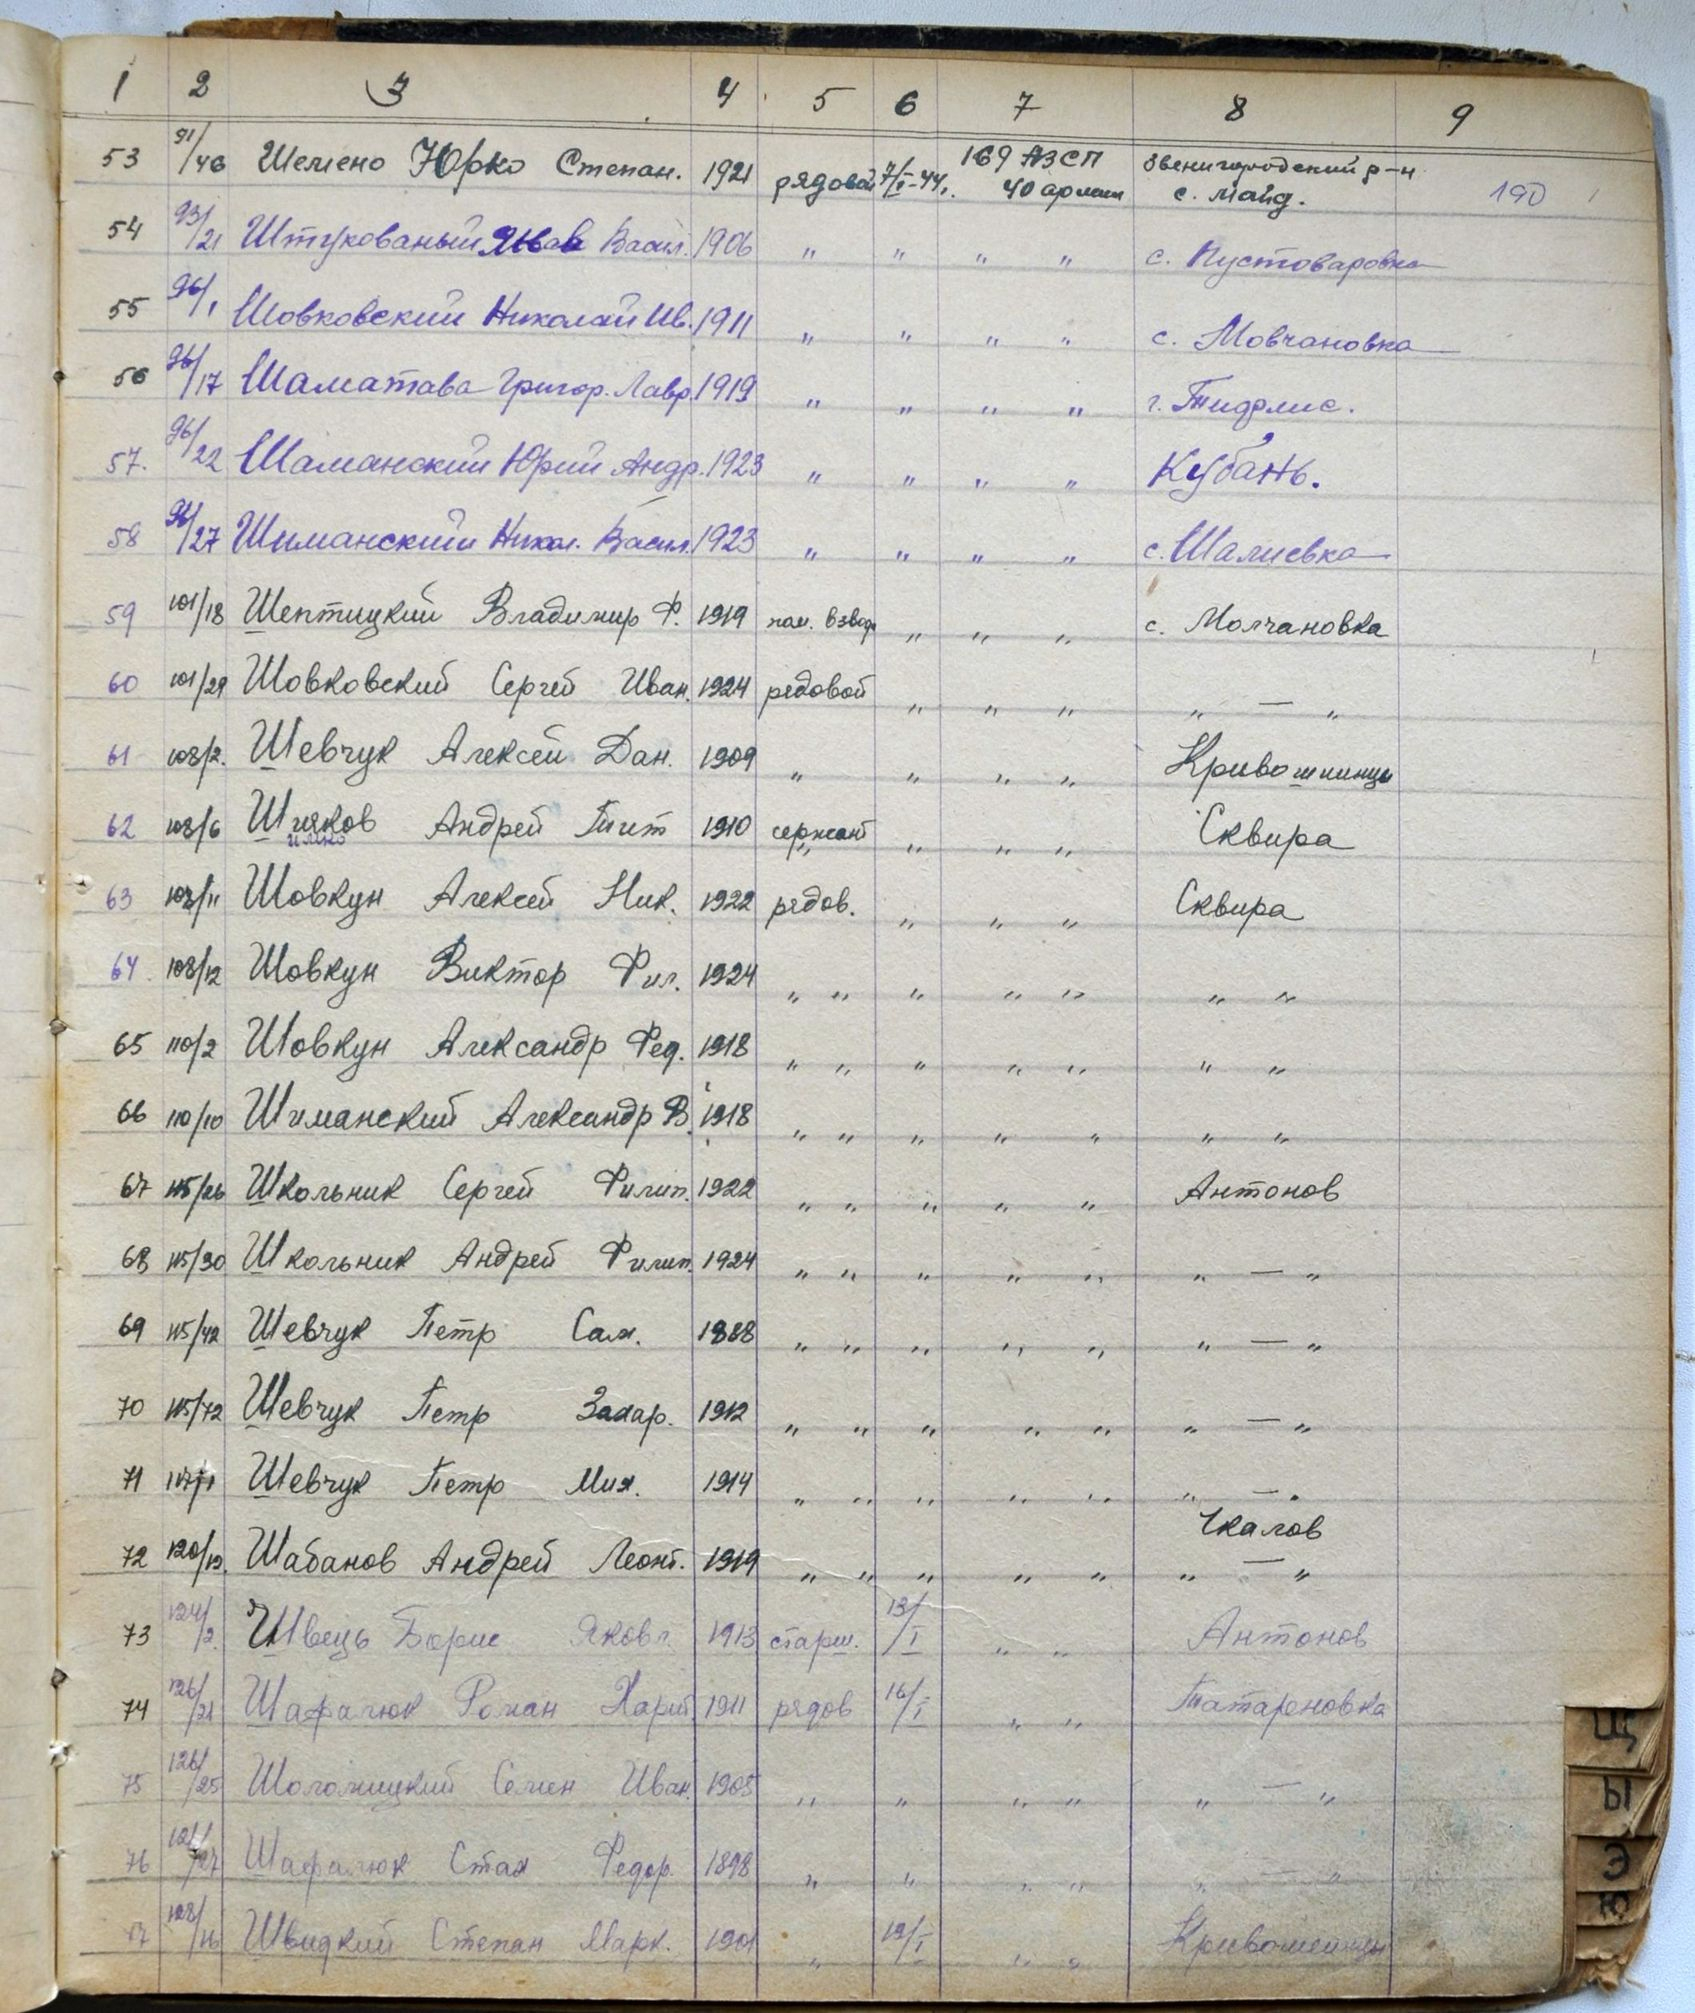 1 2 3 4 5 6 7 8 9
53 91/46 Шемено Юрко Степан. 1921 рядовой 7/I-44г. 169 АЗСП 40 армии Звенигородский р-н с. Майд. 190
54 93/21 Штукованый Яков Васил. 1906 " " " " с. Пустоваровка
55 96/1 Шовковский Николай Ив. 1911 " " " " с. Мовчановка
56 96/17 Шаматава Григор. Лавр. 1919 " " " " г. Тифлис.
57. 96/22 Шаманский Юрий Андр. 1923 " " " " Кубань.
58 96/27 Шиманский Никол. Васил. 1923 " " " " с. Шалиевка
59 101/18 Шептицкий Владимир Ф. 1919 пом. взвод " " " с. Молчановка
60 101/29 Шовковский Сергей Иван. 1924 рядовой " " " " — "
61 108/2. Шевчук Алексей Дан. 1909 " " " " Кривошиинцы
62 108/6 Андрей Тит 1910 сержант " " " Сквира
63 108/11 Шовкун Алексей Ник. 1922 рядов. " " " Сквира
64. 108/12 Шовкун Виктор Фил. 1924 " " " " " " "
65 110/2 Шовкун Александр Фед. 1918 " " " " " " "
66 110/10 Шиманский Александр В. 1918 " " " " " " "
67 115/26 Школьник Сергей Филип. 1922 " " " " " Антонов
68 115/30 Школьник Андрей Филип. 1924 " " " " " " — "
69 115/42 Шевчук Петр Сам. 1888 " " " " " " — "
70 115/72 Шевчук Петр Захар. 1912 " " " " " " — "
71 Шевчук Петр Мих. 1914 " " " " " " — "
Чкалов
72 120/12. Шабанов Андрей Леонт. 1919 " " " " " " — "
73 124/2. Швець Борис Яковл. 1913 старш. 13/I " " Антонов
74 126/21 Шафалюк Роман Харит. 1911 рядов 16/I " " Татареновка
75 126/25 Шоломицкий Семен Иван. 1905 " " " " " — "
76 Шафалюк Стах Федор. 1898 " " " " " — "
77 128/16 Швидкий Степан Марк. 1901 " 19/I " " Кривошеинцы
Щ
Ы
Э
Ю